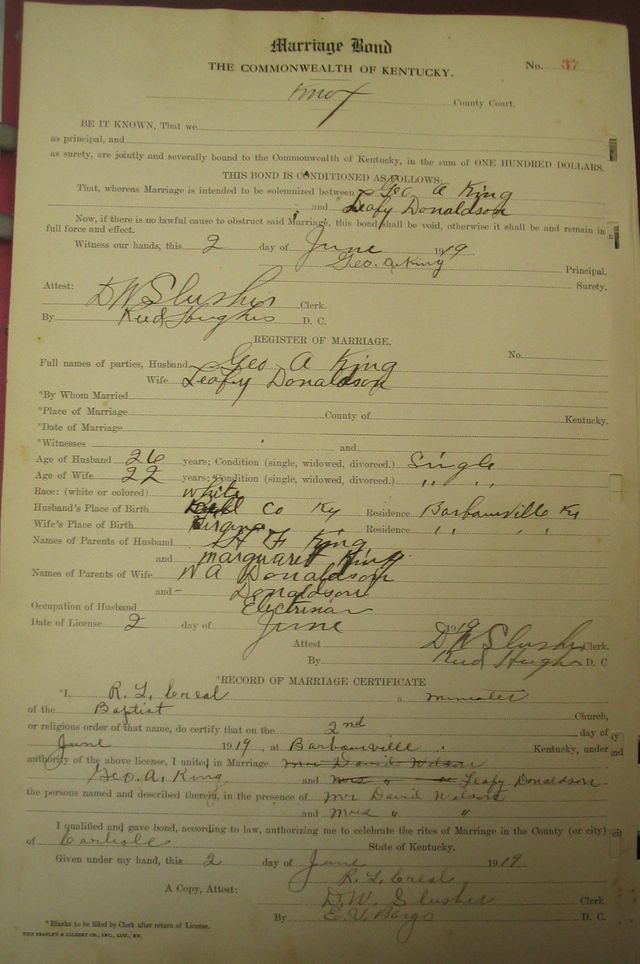 Marriage Bond
THE COMMONWEALTH OF KENTUCKY.
No. 37
Knox County Court.
BE IT KNOWN, That we
as principal, and
as surety, are jointly and severally bound to the Commonwealth of Kentucky, in the sum of ONE HUNDRED DOLLARS.
THIS BOND IS CONDITIONED AS FOLLOWS:
That, whereas Marriage is intended to be solemnized between Geo A King
and Leafy Donaldson
Now, if there is no lawful cause to obstruct said Marriage, this bond shall be void, otherwise it shall be and remain in
full force and effect.
Witness our hands, this 2 day of June 1919
Geo. A King Principal.
Surety.
Attest:
D W Slusher Clerk.
By Hughes D. C.
REGISTER OF MARRIAGE.
No.
Full names of parties, Husband Geo A King
Wife Leafy Donaldson
*By Whom Married
*Place of Marriage County of Kentucky.
*Date of Marriage
*Witnesses and
Age of Husband 26 years; Condition (single, widowed, divorced.) Single
Age of Wife 22 years; Condition (single, widowed, divorced.) " "
Race: (white or colored) White
Husband's Place of Birth Co Ky Residence Barbourville Ky
Wife's Place of Birth Residence " "
Names of Parents of Husband F King
and Marguaret King
Names of Parents of Wife W A Donaldson
and - Donaldson
Occupation of Husband Electrician
Date of License 2 day of June 1919
Attest D W Slusher Clerk.
By Hughes D. C
*RECORD OF MARRIAGE CERTIFICATE
*I, R. L. Creal a minister
of the Baptist Church,
or religious order of that name, do certify that on the 2nd day of
June 1919, at Barbourville Kentucky, under
authority of the above license, I united in Marriage Mr David Wilson
Geo. A. King and Mrs " " Leafy Donaldson
the persons named and described therein, in the presence of Mr David Wilson
and Mrs " "
I qualified and gave bond, according to law, authorizing me to celebrate the rites of Marriage in the County (or city)
of Carlisle State of Kentucky.
Given under my hand, this 2 day of June 1919
R. L. Creal
A Copy, Attest: D. W. Slusher Clerk.
By E. V. Bargo D. C.
*Blanks to be filled by Clerk after return of License.
THE BRADLEY & GILBERT CO., INC., LOU., KY.